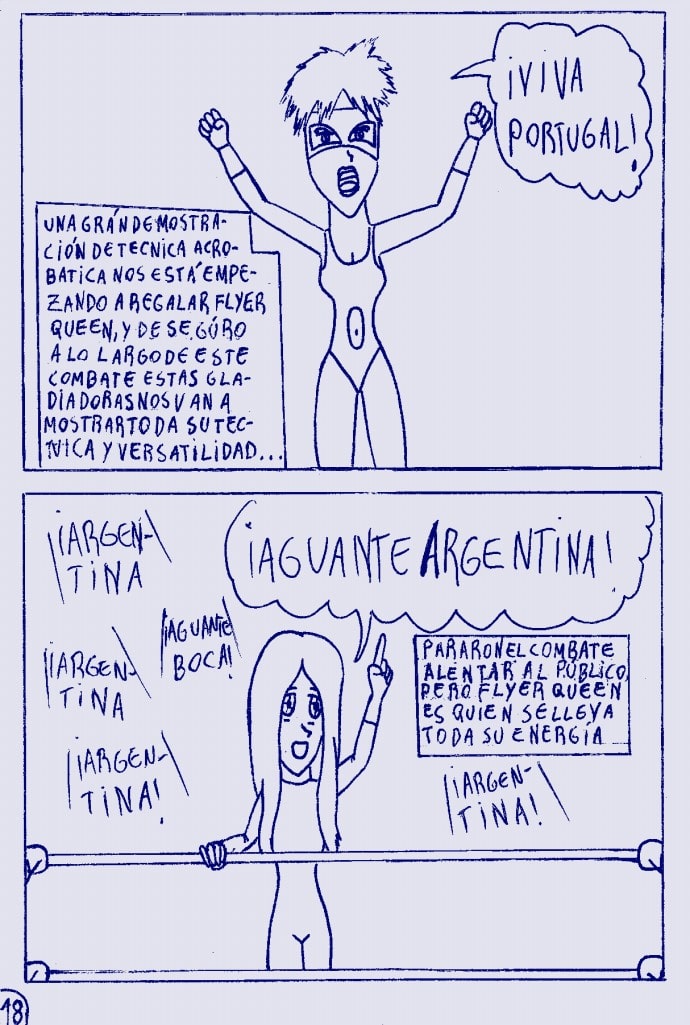 ¡VIVA
PORTUGAL!
UNA GRÁN DEMOSTRA-
CIÓN DE TECNICA ACRO-
BATICA NOS ESTÁ EMPE-
ZANDO A REGALAR FLYER
QUEEN, Y DE SEGÚRO
A LO LARGO DE ESTE
COMBATE ESTAS GLA-
DIADORAS NOS VAN A
MOSTRAR TODA SU TEC-
NICA Y VERSATILIDAD...
¡ARGEN-
TINA
¡AGUANTE ARGENTINA!
¡AGUANTE
BOCA!
¡ARGEN-
TINA
PARARON EL COMBATE
ALENTAR AL PÚBLICO,
PERO FLYER QUEEN
ES QUIEN SE LLEVA
TODA SU ENERGÍA
¡ARGEN-
TINA!
¡ARGEN-
TINA!
18